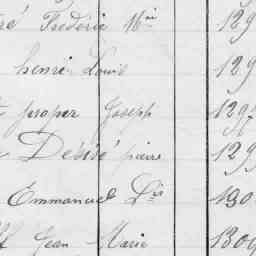 ré Frédéric Mie 129
henri Louis 129
t prosper Joseph 129
Désiré pierre 129
Emmanuel Lis 130
ff Jean Marie 130